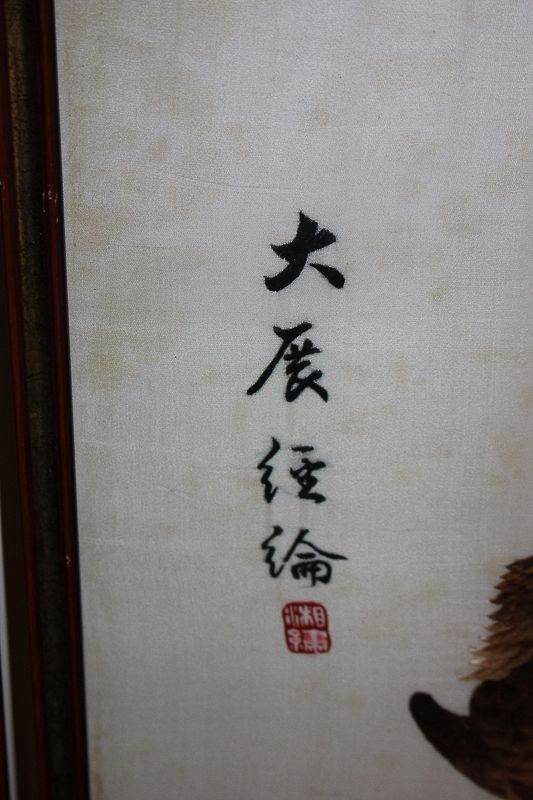 大展經綸
湘繡